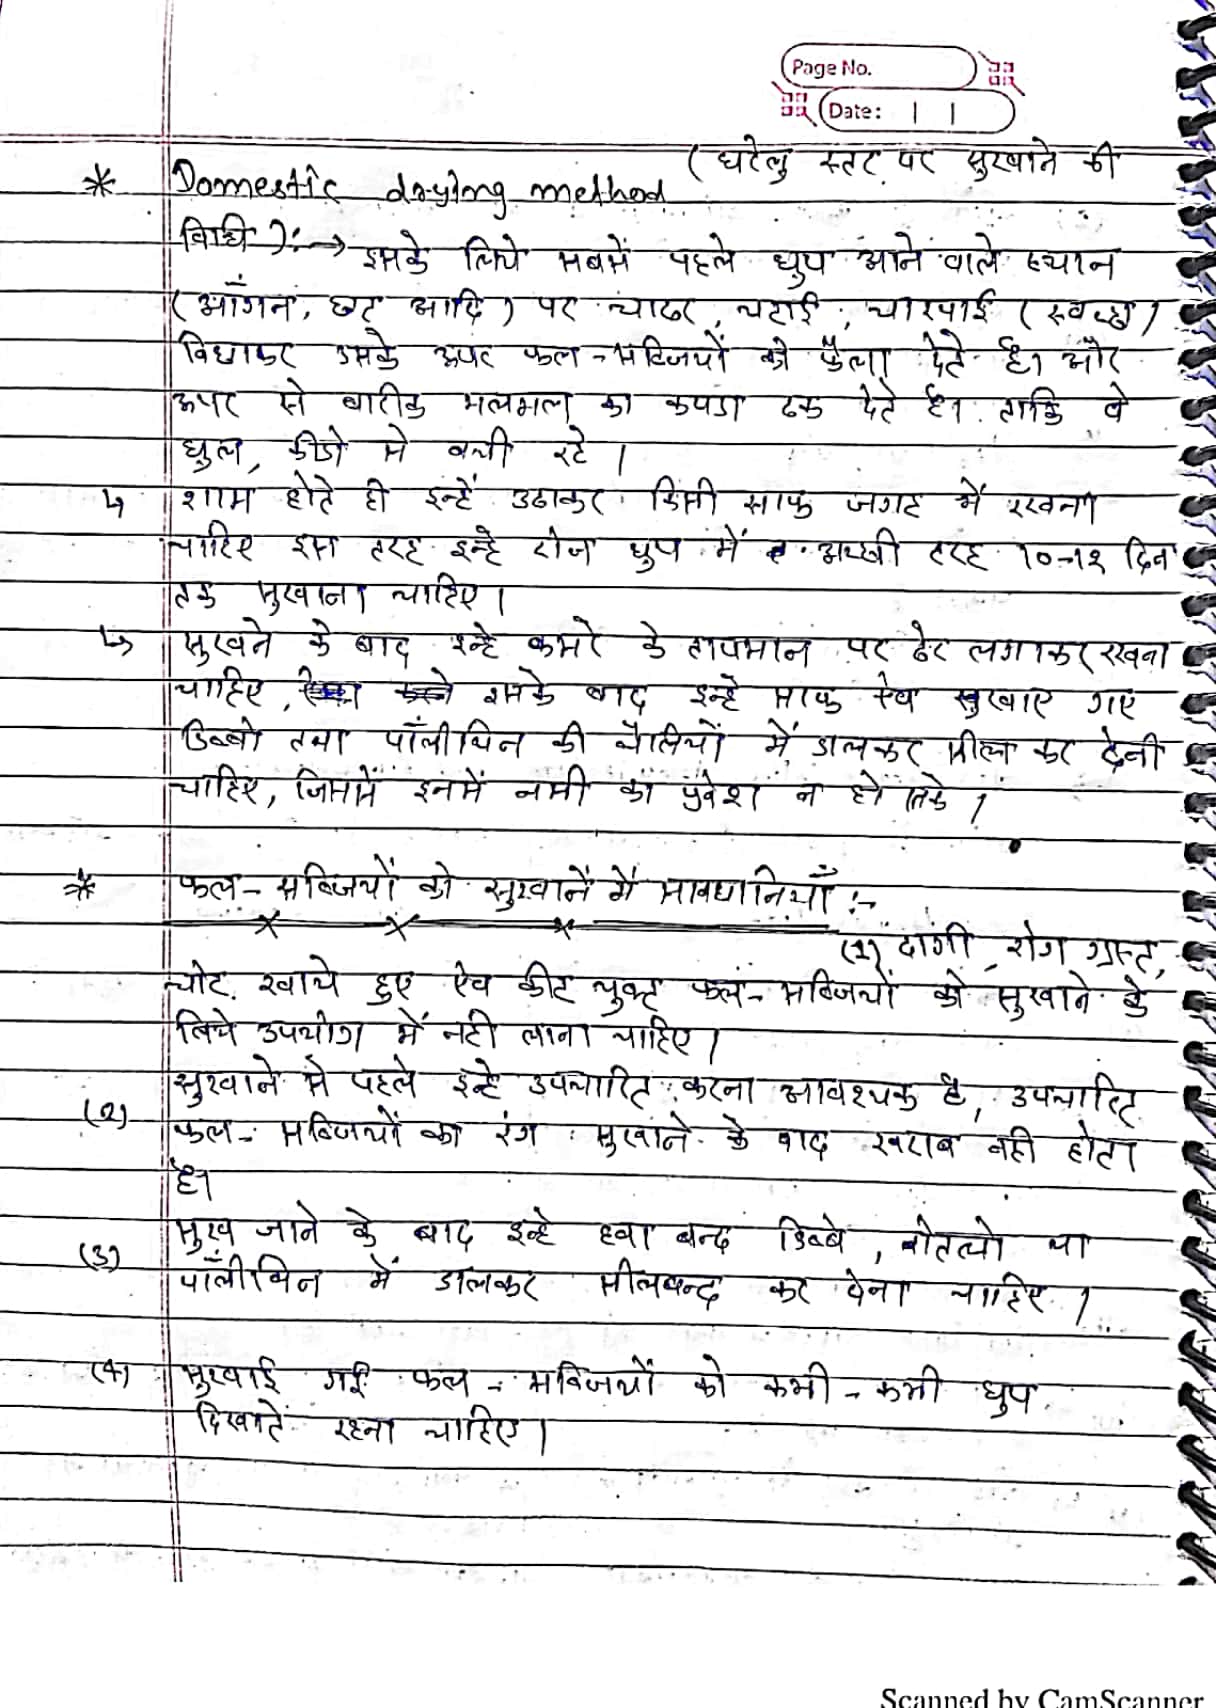 Page No.
Date: | |
(घरेलु स्तर पर सुखाने की
* Domestic drying method
विधि ):→ इसके लिये सबसे पहले धुप आने वाले स्थान
(आँगन, छत आदि) पर चादर, चटाई, चारपाई (स्वच्छ)
विछाकर उसके ऊपर फल-सब्जियों को फैला देते है। और
ऊपर से बारीक मलमल का कपडा ढक देते है। ताकि वे
धुल, कीडो से बची रहे।
↳ शाम होते ही इन्हें उठाकर किसी साफ जगह में रखना
चाहिए इस तरह इन्हे रोज धुप में अच्छी तरह 10-12 दिन
तक सुखाना चाहिए।
↳ सुखने के बाद इन्हे कमरे के तापमान पर ढेर लगाकर रखना
चाहिए, इसके बाद इन्हे साफ ऐव सुखाए गए
डिब्बो तथा पॉलीथिन की थैलियों में डालकर सील कर देनी
चाहिए, जिससे इनमें नमी का प्रवेश न हो सके।
* फल-सब्जियों को सुखानें में सावधानियाँ :-
(1) दागी, रोग ग्रस्त,
चोट खाये हुए ऐव कीट युक्त फल-सब्जियों को सुखाने के
लिये उपयोग में नही लाना चाहिए।
सुखाने से पहले इन्हे उपचारित करना आवश्यक है, उपचारित
(2) फल-सब्जियों का रंग सुखाने के बाद खराब नही होता
है।
सुख जाने के बाद इन्हे हवा बन्द डिब्बे, बोतलो या
(3) पॉलीथिन में डालकर सीलबन्द कर देना चाहिए।
(4) सुखाई गई फल-सब्जियों को कभी-कभी धुप
दिखाते रहना चाहिए।
Scanned by CamScanner